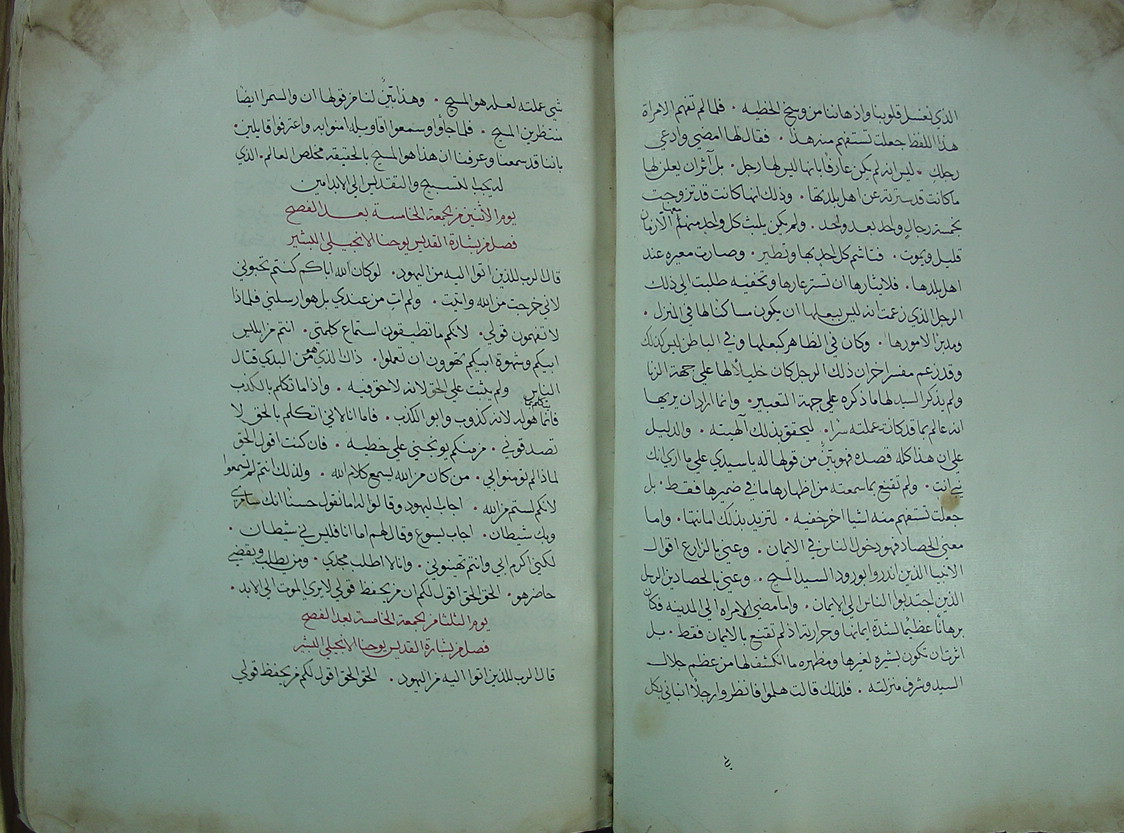 الذي يغسل قلوبنا واذهاننا من وسخ الخطيه · فلما لم تفهم الامراة
هذا اللفظ جعلت تستفهم منه هذا · فقال لها امضي وادعي
رجلك · ليس انه لم يكن عارفا بانها ليس لها رجل · بل آثر ان يعلن لها
ما كانت قد سترته عن اهل بلدتها · وذلك انها كانت قد تزوجت
بخمسة رجال واحد بعد واحد · ولم يكن يلبث كل واحد منهم معها الا زمان
قليل ويموت · فتاشم كل احد بها وتطير · وصارت معيره عند
اهل بلدها · فلايثارها ان تستر عارها وتخفيه طلبت الى ذلك
الرجل الذي زعمت انه ليس ببعلها ان يكون مساكنا لها في المنزل ·
ومدبرا لامورها · وكان في الظاهر كبعلها وفي الباطن ليس كذلك
وقد زعم مفسر اخر ان ذلك الرجل كان خليلا لها على جهة الزنا
ولم يذكر السيد لها ما ذكره على جهة التعيير · وانما اراد ان يريها
انه عالم بما قد كانت عملته سرا · ليحقق بذلك آلهيته · والدليل
على ان هذا كله قصده فهو بيّن من قولها له يا سيدي على ما ارى انك
نبي انت · ولم تقنع بما سمعته من اظهارها ما في ضميرها فقط · بل
جعلت تستفهم منه اشيا اخر خفيه · لتزيد بذلك امانتها · واما
معنى الحصاد فهو دخول الناس في الايمان · وعنى بالزارع اقوال
الانبيا الذين انذروا بورود السيد المسيح · وعنى بالحصادين الرسل
الذين اجتذبوا الناس الى الايمان · واما مضي الامراه الى المدينه فكان
برهانا عظيما لشدة ايمانها وحرارته اذ لم تقتنع بالايمان فقط · بل
اثرت ان تكون بشيره لغيرها ومظهره ما انكشف لها من عظم جلال
السيد وشرف منزلته · فلذلك قالت هلموا فانظروا رجلا انباني بكل
شي عملته لعله هو المسيح · وهذا بيّن لنا من قولها ان والسمرا ايضا
منتظرين المسيح · فلما جاؤا وسمعوا اقاويله امنوا به واعترفوا قايلين
باننا قد سمعنا وعرفنا ان هذا هو المسيح بالحقيقه مخلص العالم · الذي
له يجب التسبيح والتقديس الى الابد امين
يوم الاثنين من الجمعة الخامسة بعد الفصح
فصل من بشارة القديس يوحنا الانجيلي البشير
قال الرب للذين اتوا اليه من اليهود · لو كان الله اباكم كنتم تحبوني
لاني خرجت من الله واتيت · ولم ات من عندي بل هو ارسلني فلماذا
لا تفهمون قولي · لانكم ما تطيقون استماع كلمتي · انتم من ابليس
ابيكم وشهوة ابيكم تهوون ان تعملوا · ذاك الذي هو من البدي قتال
الناس ولم يثبت على الحق لانه لا حق فيه · واذا ما تكلم بالكذب
فانما هو له يتكلم لانه كذوب وابو الكذب · فاما انا لاني اتكلم بالحق لا
تصدقوني · من منكم يوبخني على خطيه · فان كنت اقول الحق
لماذا لم تومنوا بي · من كان من الله يسمع كلام الله · ولذلك انتم لم تسمعوا
لانكم لستم من الله · اجاب اليهود وقالوا له اما نقول حسنا انك سامري
وبك شيطان · اجاب يسوع وقال لهم اما انا فليس بي شيطان ·
لكني اكرم ابي وانتم تهينوني · وانا لا اطلب مجدي · ومن يطلب ويقضي
حاضر هو · الحق الحق اقول لكم ان من يحفظ قولي لا يرى الموت الى الابد ·
يوم الثلثا من الجمعة الخامسة بعد الفصح
فصل من بشارة القديس يوحنا الانجيلي البشير
قال الرب للذين اتوا اليه من اليهود · الحق الحق اقول لكم من يحفظ قولي